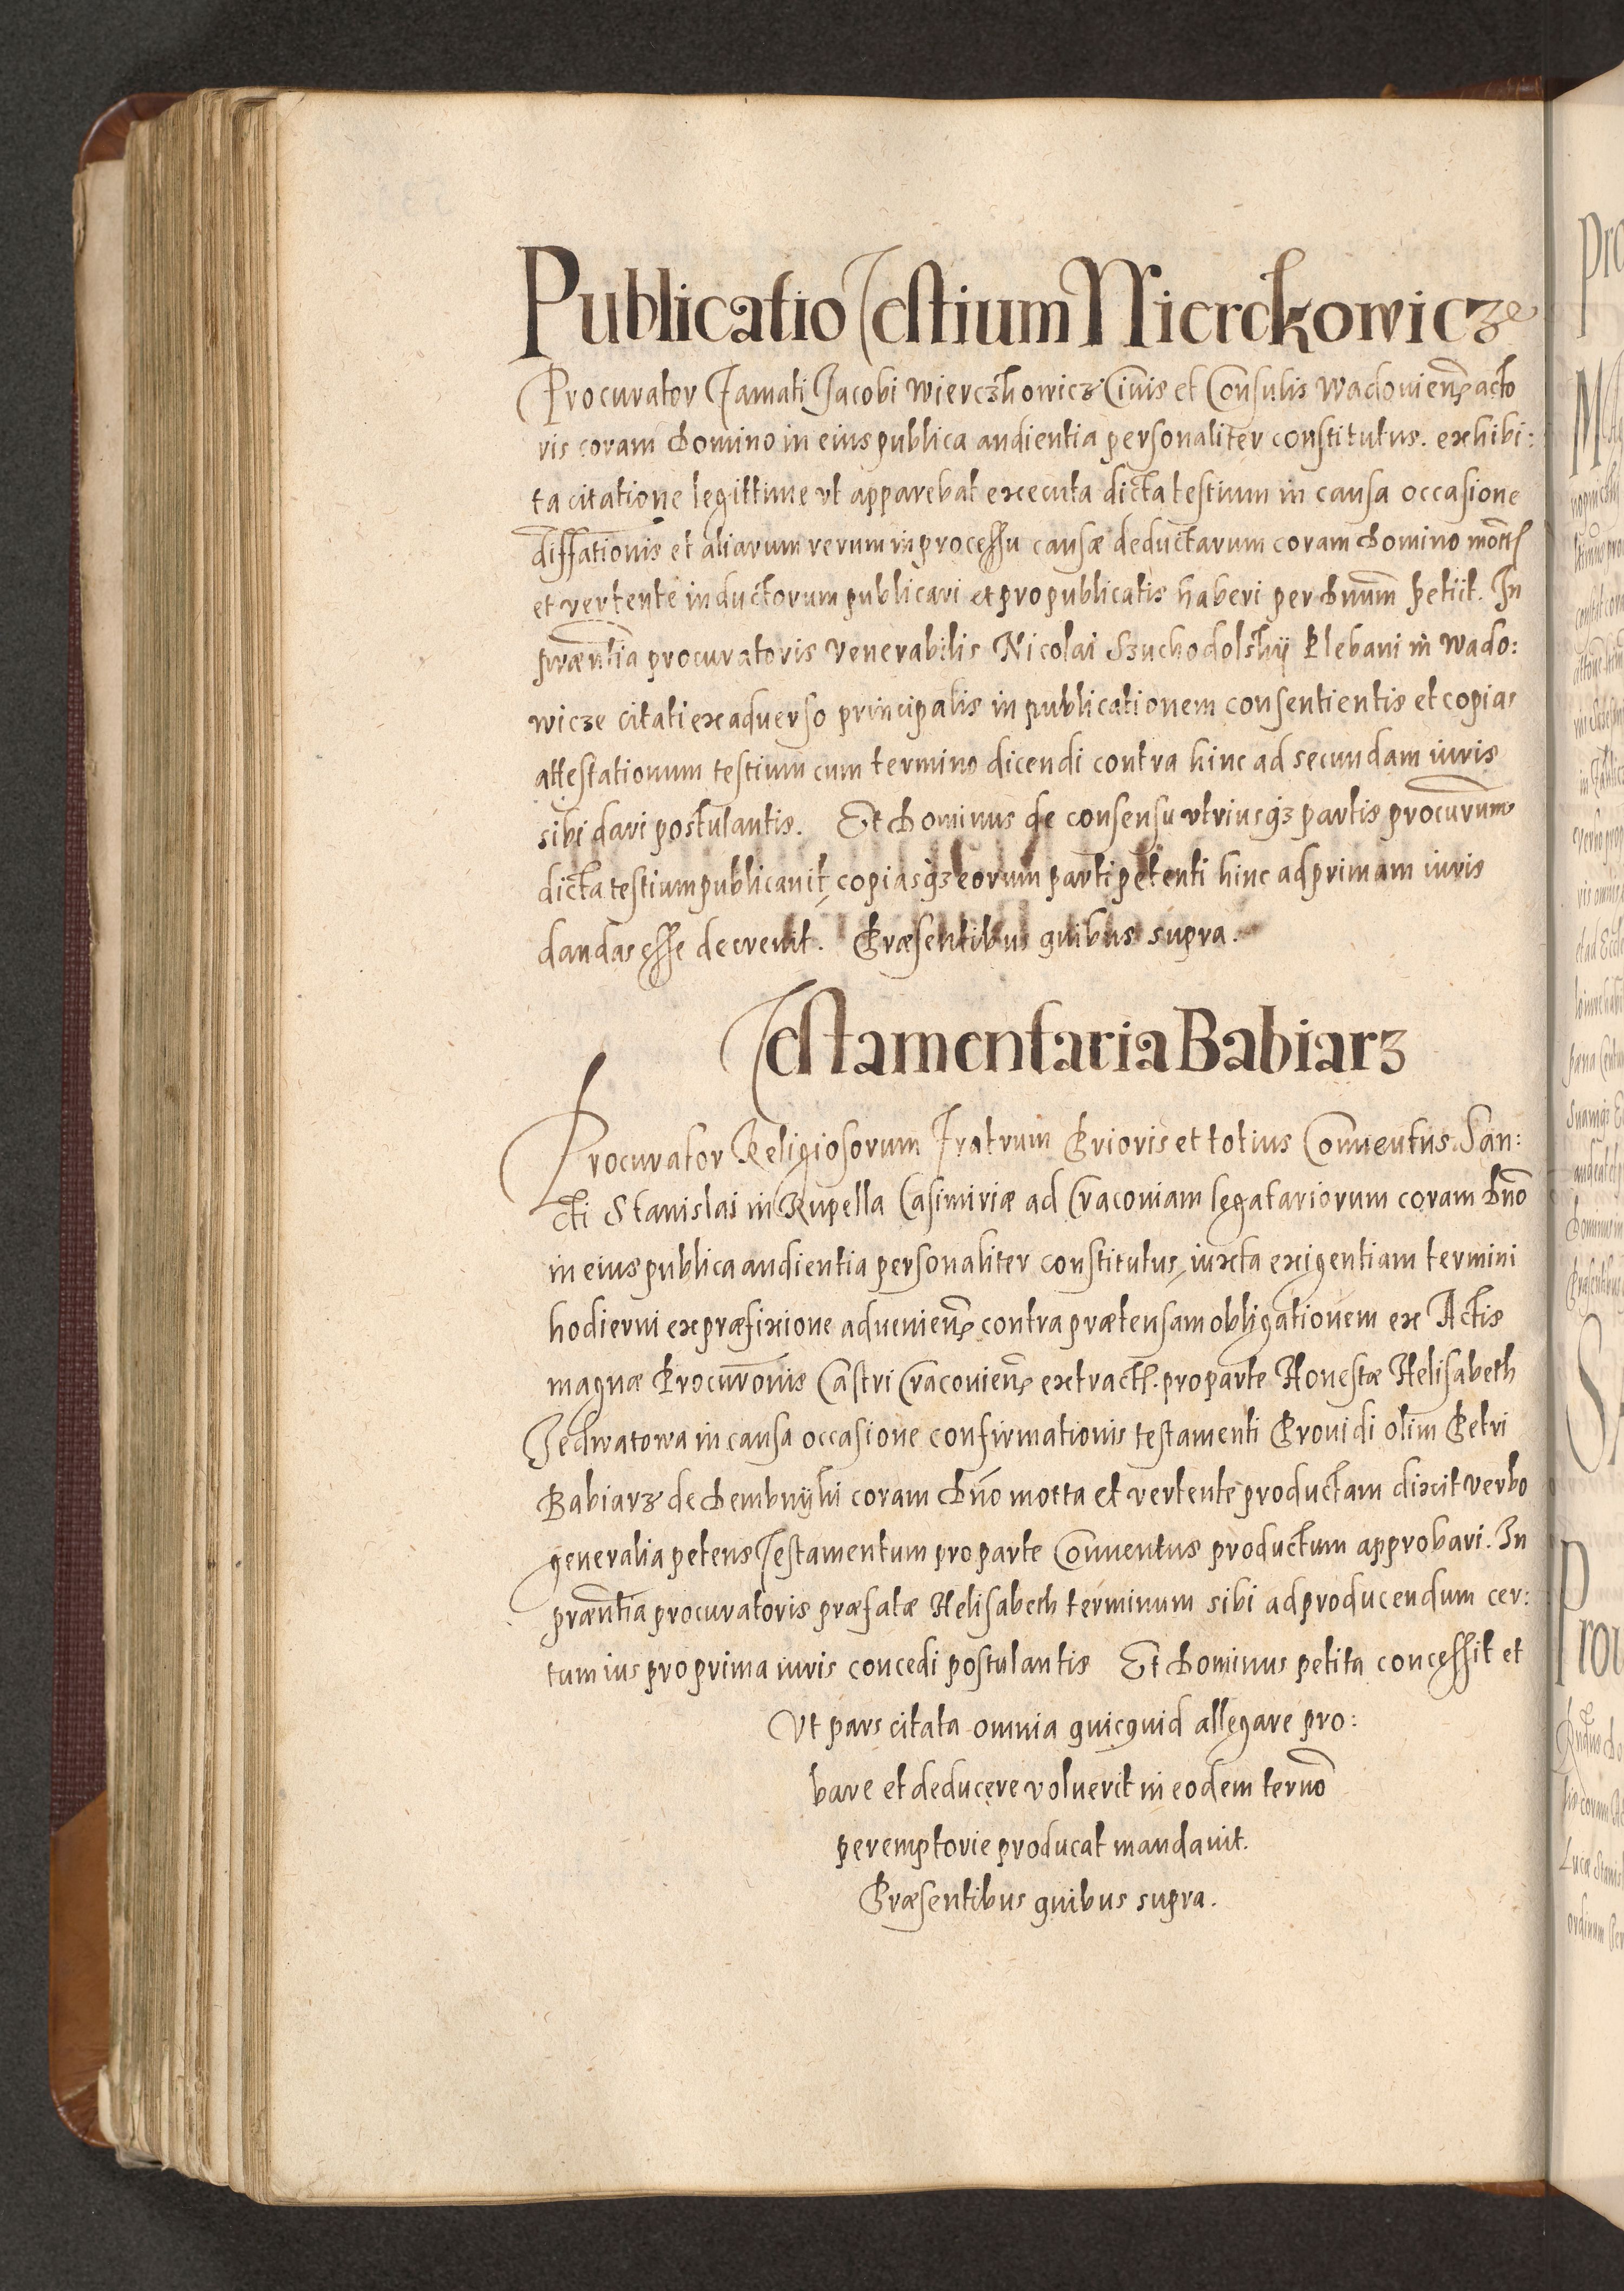 Publicatio Testium Wierckowicze
Procurator Famati Jacobi Wierczkowicz Civis et Consulis Wadoviens acto
ris coram Domino in eius publica audientia personaliter constitutus. exhibi:
ta citatione legittime ut apparebat executa dicta testium in causa occasione
diffationis et aliarum rerum in processu causæ deductarum coram Domino
et vertente inductorum publicari et pro publicatis haberi per Dnum petiit. In
præntia procuratoris Venerabilis Nicolai Szuchodolskÿ Plebani in Wado:
wicze citati ex adverso principalis in publicationem consentientis et copias
attestationum testium cum termino dicendi contra hinc ad secundam iuris
sibi dari postulantis. Et Dominus de consensu utriusqz partis procurum
dicta testium publicavit, copiasqz eorum parti petenti hinc ad primam iuris
dandas esse decrevit. Præsentibus quibus supra.
Testamentaria Babiarz
Procurator Religiosorum Fratrum Prioris et totius Conventus San:
cti Stanislai in Rupella Casimiriæ ad Cracoviam legatariorum coram Dno
in eius publica audientia personaliter constitutus, iuxta exigentiam termini
hodierni ex præfixione adveniens contra prætensam obligationem ex Actis
magnæ Procuronis Castri Cracoviens extract. pro parte Honestæ Helisabeth
Jedwatowa in causa occasione confirmationis testamenti Providi olim Petri
Babiarz de Dembnÿki coram Dno motta et vertente productam dixit verbo
generalia petens Testamentum pro parte Conventus productum approbari. In
præntia procuratoris præfatæ Helisabeth terminum sibi ad producendum cer:
tum ius pro prima iuris concedi postulantis Et Dominus petita concessit et
Ut pars citata omnia quicquid allegare pro:
bare et deducere voluerit in eodem terno
peremptorie producat mandavit.
Præsentibus quibus supra.